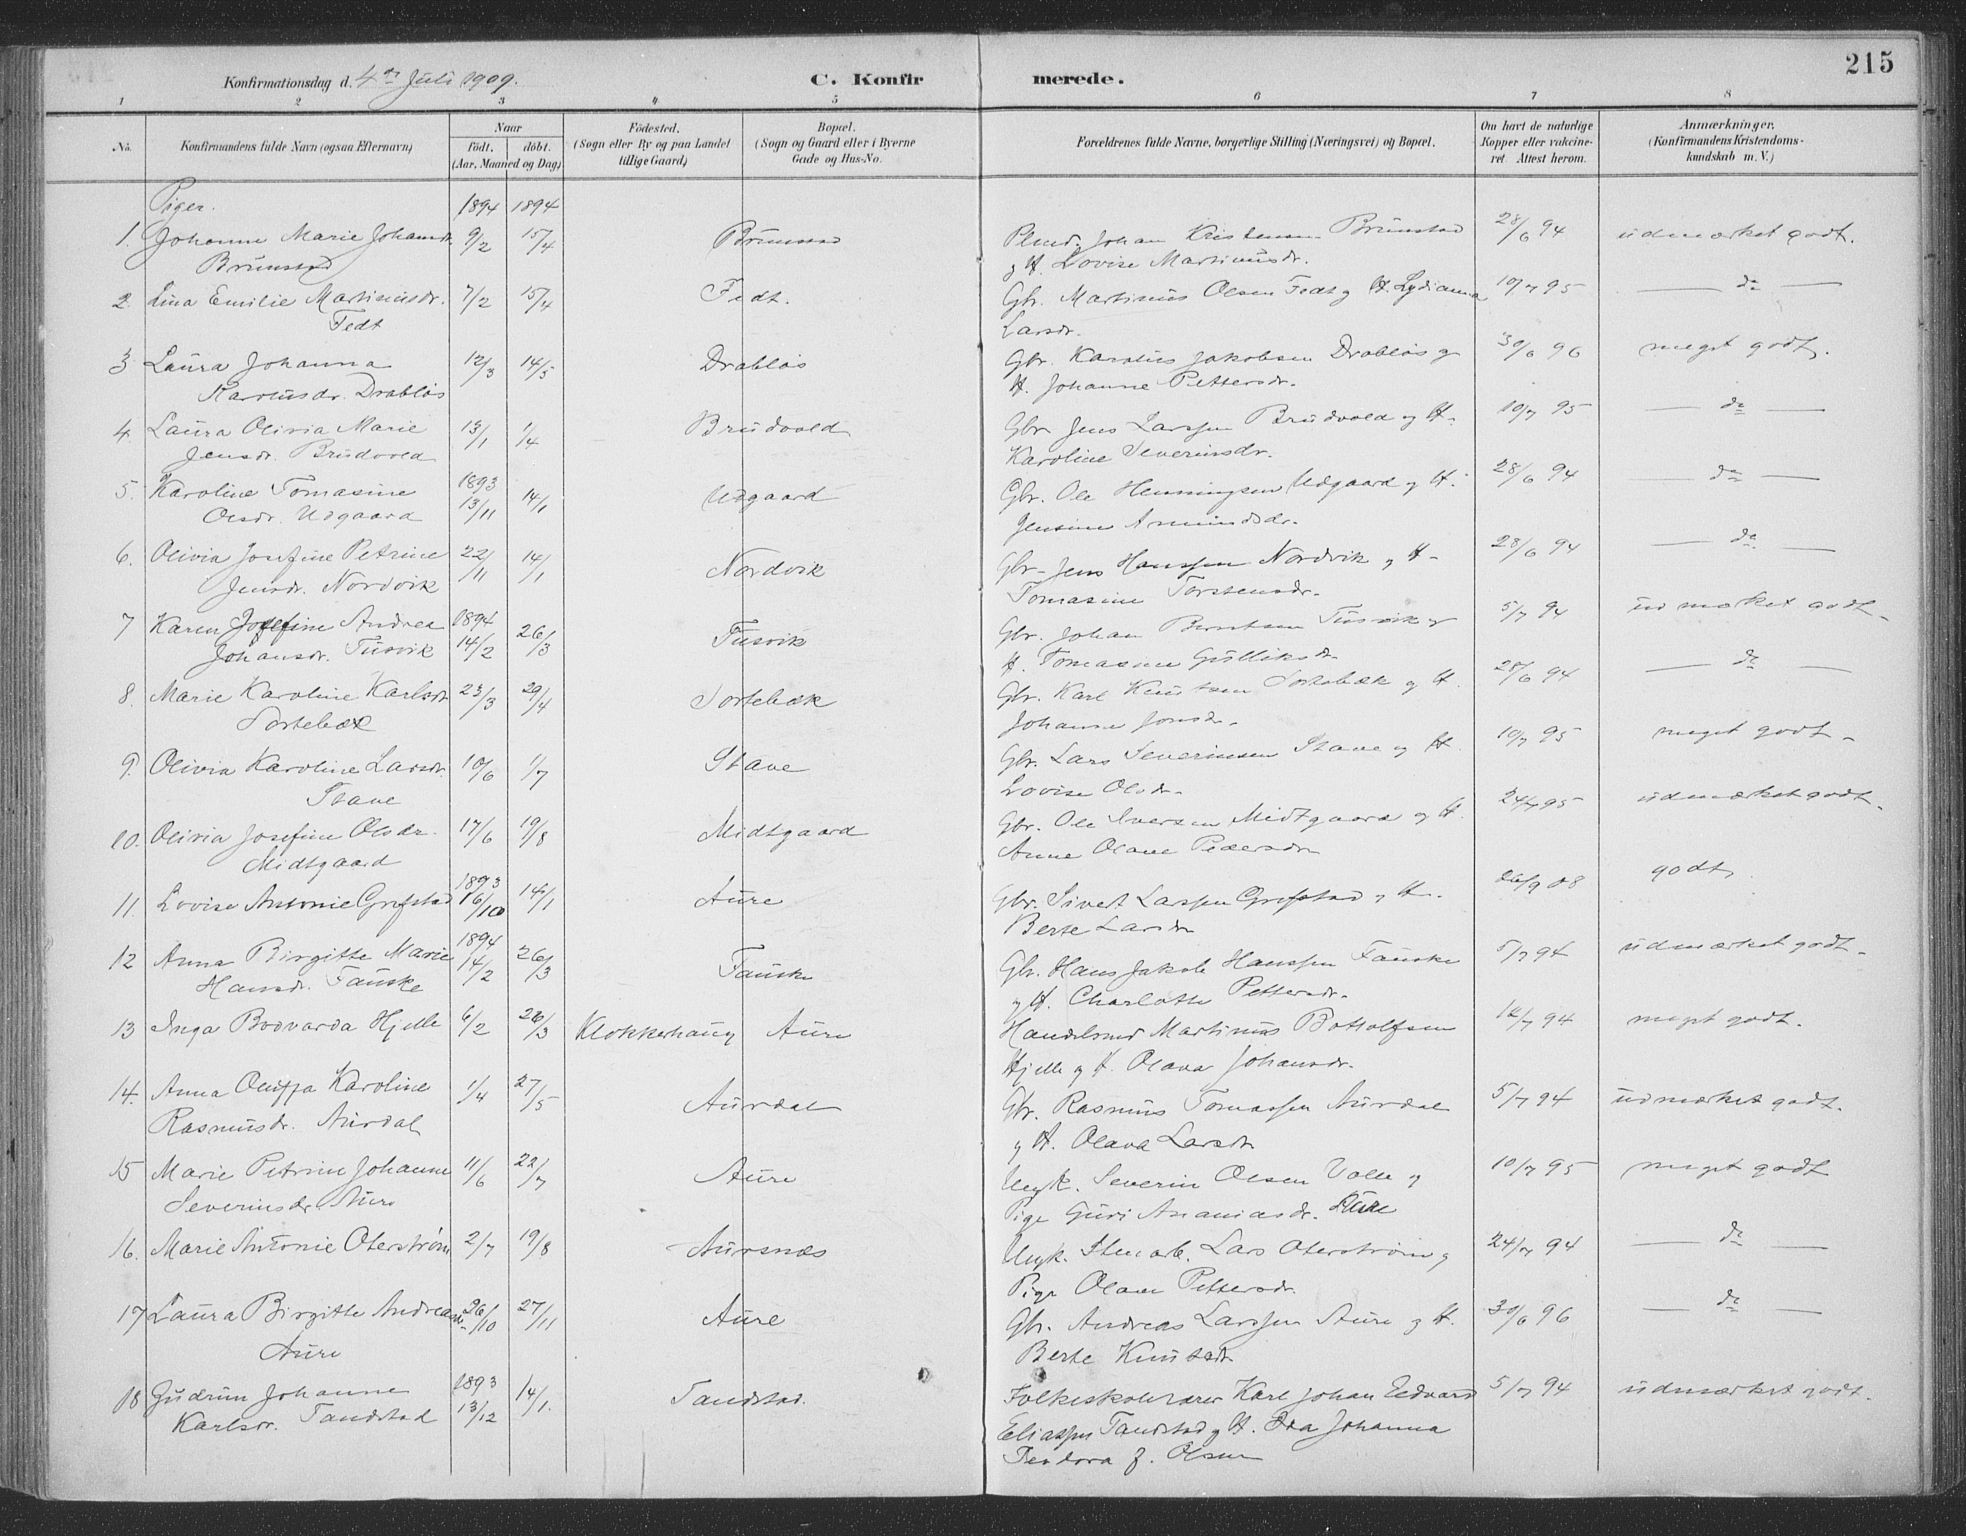 215
Konfirmationsdag d. 4de Juli 1909. C. Konfirmerede.
1 2 3 4 5 6 7 8
No. Konfirmandens fulde Navn (ogsaa Efternavn) Naar födt. döbt. (Aar, Maaned og Dag) Födested. (Sogn eller By og paa Landet tillige Gaard) Bopæl. (Sogn og Gaard eller i Byerne Gade og Hus-No. Forældrenes fulde Navne, borgerlige Stilling (Næringsvei) og Bopæl. Om havt de naturlige Kopper eller vakcineret. Attest herom. Anmærkninger. (Konfirmandens Kristendomskundskab m. V.)
Piger. 1894 1894
1. Johanne Marie Johansdr. 9/2 15/4 Brunstad Johan Kristensen Brunstad 28/6 94 udmærket godt.
Brunstad og H. Lovise Martinusdr.
2. Lina Emilie Martinusdr. 7/2 15/4 Fedt. Gbr. Martinus Olsen Fedt og H. Lydianna 10/7 95 — do —
Fedt Larsdr.
3 Laura Johanna 12/3 14/5 Drabløs Gbr. Karolus Jakobsen Drabløs og 30/6 96 meget godt.
Karolusdr. Drabløs H. Johanne Pettersdr.
4. Laura Olivia Marie 13/1 1/4 Brudvold Gbr Jens Larssen Brudvold og H. 10/7 95 — do —
Jensdr. Brudvold Karoline Severinsdr.
5. Karoline Tomasine 1893 13/11 14/1 Udgaard Gbr. Ole Henningsen Udgaard og H. 28/6 94 — do —
Olsdr. Udgaard Jensine Amundsdr.
6. Olivia Josefine Petrine 22/11 14/1 Nordvik Gbr. Jens Hanssen Nordvik og H. 28/6 94 — do —
Jensdr. Nordvik Tomasine Torstensdr.
7 Karen Josefine Andrea 1894 14/2 26/3 Tusvik Gbr. Johan Berntsen Tusvik og 5/7 94 udmærket godt.
Johansdr. Tusvik H. Tomasine Gulliksdr
8. Marie Karoline Karlsdr 23/3 29/4 Sortebæk Gbr. Karl Knutsen Sortebæk og H. 28/6 94 — do —
Sortebæk Johanne Jonsdr.
9. Olivia Karoline Larsdr. 10/6 1/7 Stave Gbr. Lars Severinsen Stave og H. 10/7 95 meget godt.
Stave Lovise Olsdr.
10. Olivia Josefine Olsdr. 17/6 19/8 Midtgaard Gbr. Ole Iversen Midtgaard og H. 24/7 95 udmærket godt.
Midtgaard Anne Olave Pedersdr
11. Lovise Antonie Grefstad 1893 16/10 14/1 Aure Gbr. Sivert Larssen Grefstad og H. 26/9 08 godt,
Berte Larsdr
12 Anna Birgitte Marie 1894 14/2 26/3 Fauske Gbr. Hans Jakob Hanssen Fauske 5/7 94 udmærket godt.
Hansdr. Fauske og H. Charlotte Pettersdr.
13 Inga Bodvarda Hjelle 6/2 26/3 Klokkerhaug Aure Handelsmd Martinus Bottolfsen 94 meget godt.
Hjelle og H. Olava Johansdr.
14. Anna Karoline 1/4 27/5 Aurdal Gbr. Rasmus Tomassen Aurdal 5/7 94 udmærket godt.
Rasmusdr. Aurdal og H. Olava Larsdr
15 Marie Petrine Johanne 11/6 22/7 Aure Ungk. Severin Olsen Valle og 10/7 95 meget godt
Severinsdr Aure Pige Guri Ananiasdr. Aure
16. Marie Antonie Oterstrøm 2/7 19/8 Aursnæs Ungk. Lars Oterstrøm og 24/7 94 — do —
Pige Olave Pettersdr.
17 Laura Birgitte Andreasdr. 26/10 27/11 Aure Gbr. Andreas Larssen Aure og H. 30/6 96 — do —
Aure Berte Knutsdr
18 Gudrun Johanne 1893 13/12 14/1. Tandstad. Folkeskolelærer Karl Johan Edvard 5/7 94 udmærket godt.
Karlsdr. Tandstad Eliassen Tandstad og H. Johanna
Teodora f. Olsen